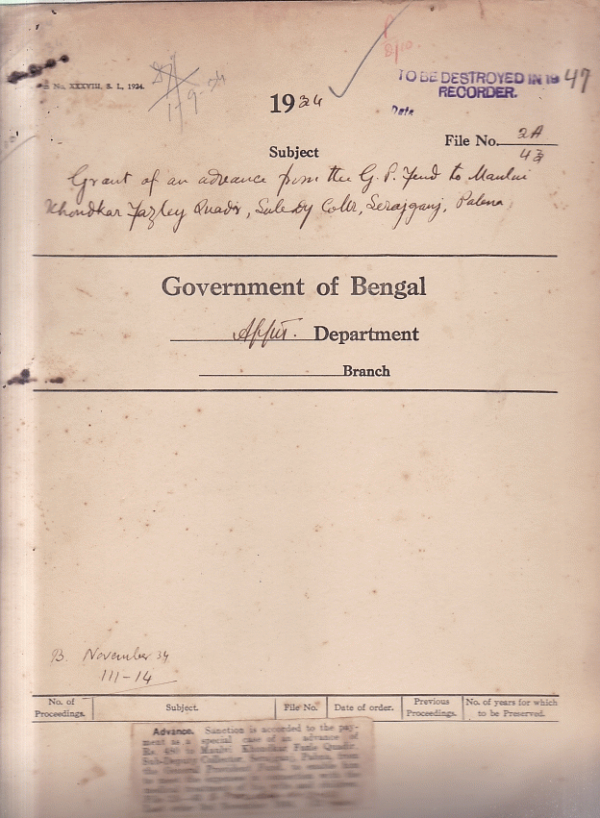 No. XXXVIII, S. I., 1934.
17-9-34
8/10
TO BE DESTROYED IN 1947
RECORDER.
Date
1934
File No. 2A
43
Subject
Grant of an advance from the G. P. Fund to Maulvi
Khondkar Fazley Quadir, Sub-Dy Collr, Serajganj, Pabna
Government of Bengal
Apptt. Department
Branch
B. November 34
111-14
No. of Proceedings. Subject. File No. Date of order. Previous Proceedings. No. of years for which to be Preserved.
Advance. Sanction is accorded to the pay-
ment as a special case of an advance of
Rs. 480 to Maulvi Khondkar Fazle Quadir,
Sub-Deputy Collector, Serajganj, Pabna, from
the General Provident Fund, to enable him
to